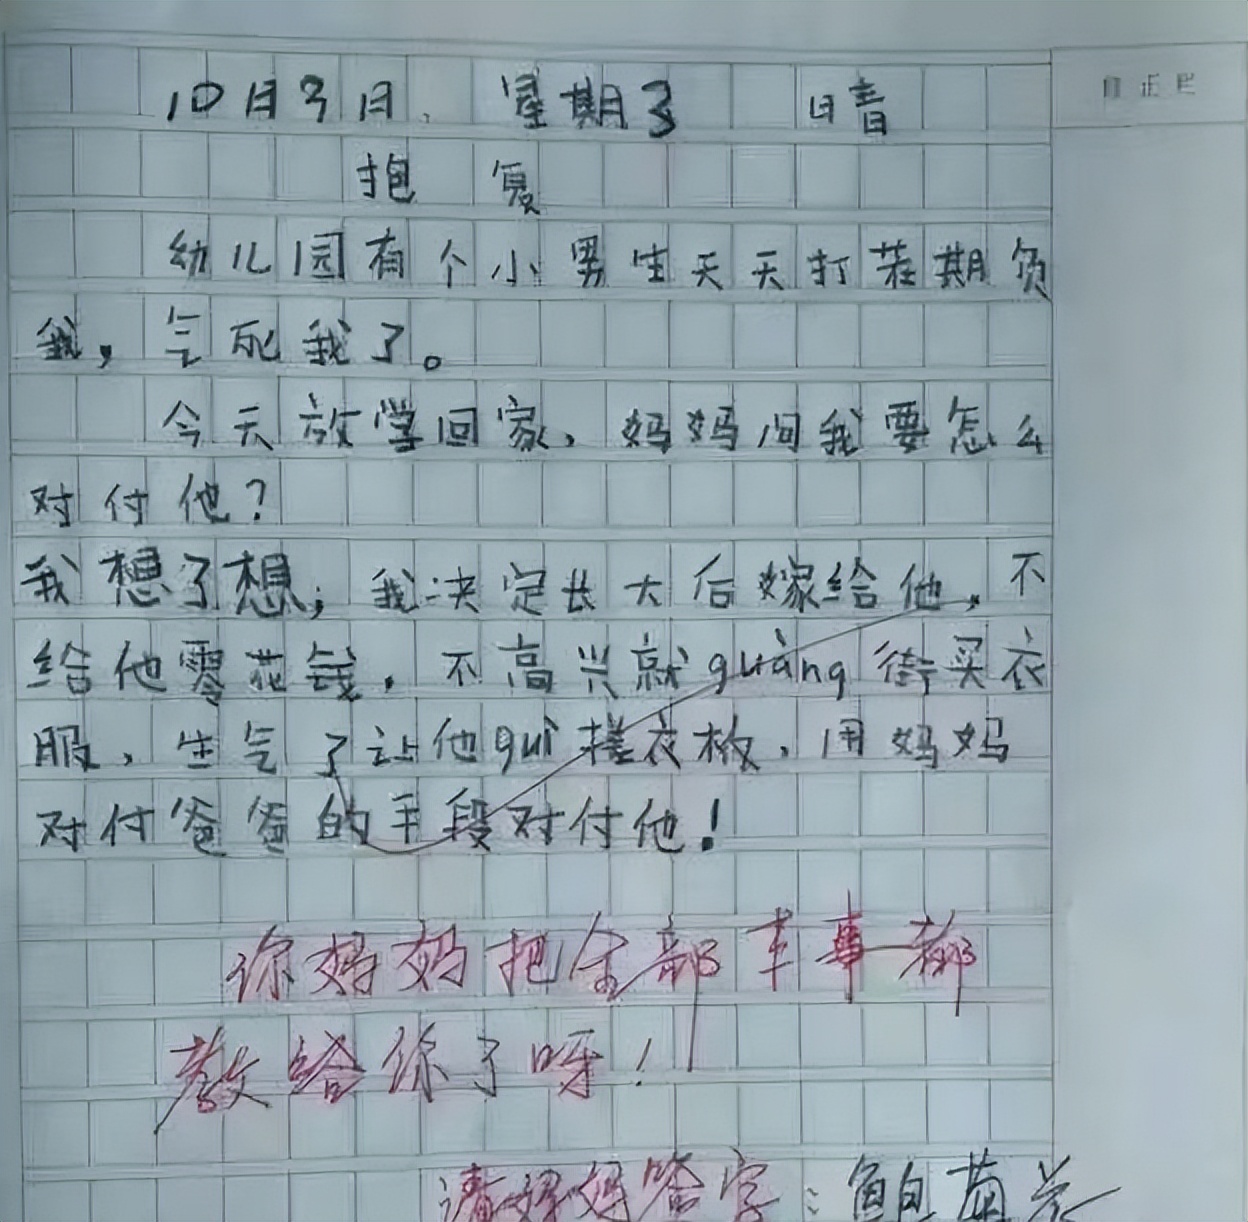 10月3日, 星期3 晴
抱 复
幼儿园有个小男生天天打若期负
我,气死我了。
今天放学回家,妈妈问我要怎么
对付他?
我想了想,我决定长大后嫁给他,不
给他零花钱,不高兴就guàng街买衣
服,生气了让他guì搓衣板,用妈妈
对付爸爸的手段对付他!
你妈妈把全部本事都
教给你了呀!
请妈妈签字: